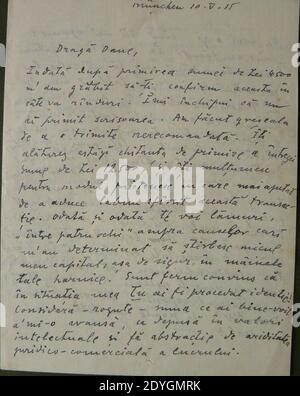 München 10.V.15
Dragă Dane,
Îndată după primirea sumei de Lei 4500
m'am grăbit să-ți confirm aceasta în
câteva rînduri. Îmi închipui că nu
ai primit scrisoarea. Am făcut greșeala
de a o trimite nerecomandată. Îți
alăturez astăzi chitanța de primire a întregei
sume de Lei și îți mulțumesc
pentru modul prietenesc în care mai aputut
de a aduce aceastā transac-
ție. Odată și odată îți voi lămuri,
"între patru ochi" asupra cauzelor cari
m'au determinat să știrbesc micul
meu capital, așa de sigur, în mâinele
tale harnice. Sunt ferm convins că
în situația mea Tu ai fi procedat identic.
Consideră - rogu-te - suma ce ai bine-voit
a'mi-o avansa, ca depusă în valori
intelectuale și fă abstracție de ariditatea
juridico-comercială a lucrului.
alamy
Image ID: 2DYGMRK
www.alamy.com